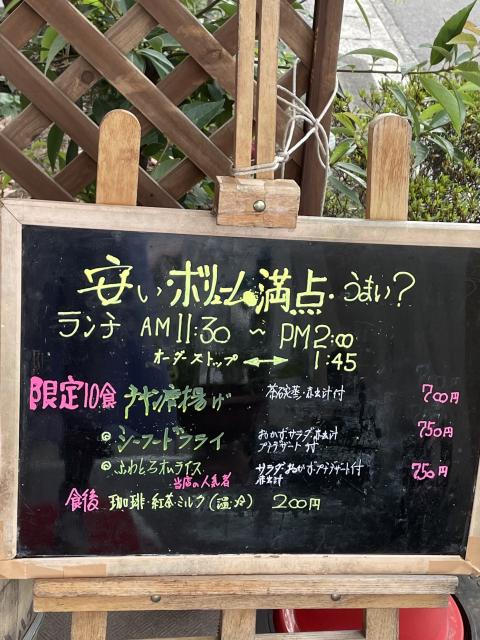 安い・ボリューム満点・うまい?
ランチ AM11:30 ~ PM2:00
オーダーストップ ↔ 1:45
限定10食 チキン唐揚げ 茶碗蒸・赤出汁付 700円
◎シーフードフライ おかず・サラダ・赤出汁 プチデザート付 750円
◎ふわとろオムライス サラダ・おかず・プチデザート付 赤出汁 750円
当店の人気者
食後 珈琲・紅茶・ミルク(温・冷) 200円